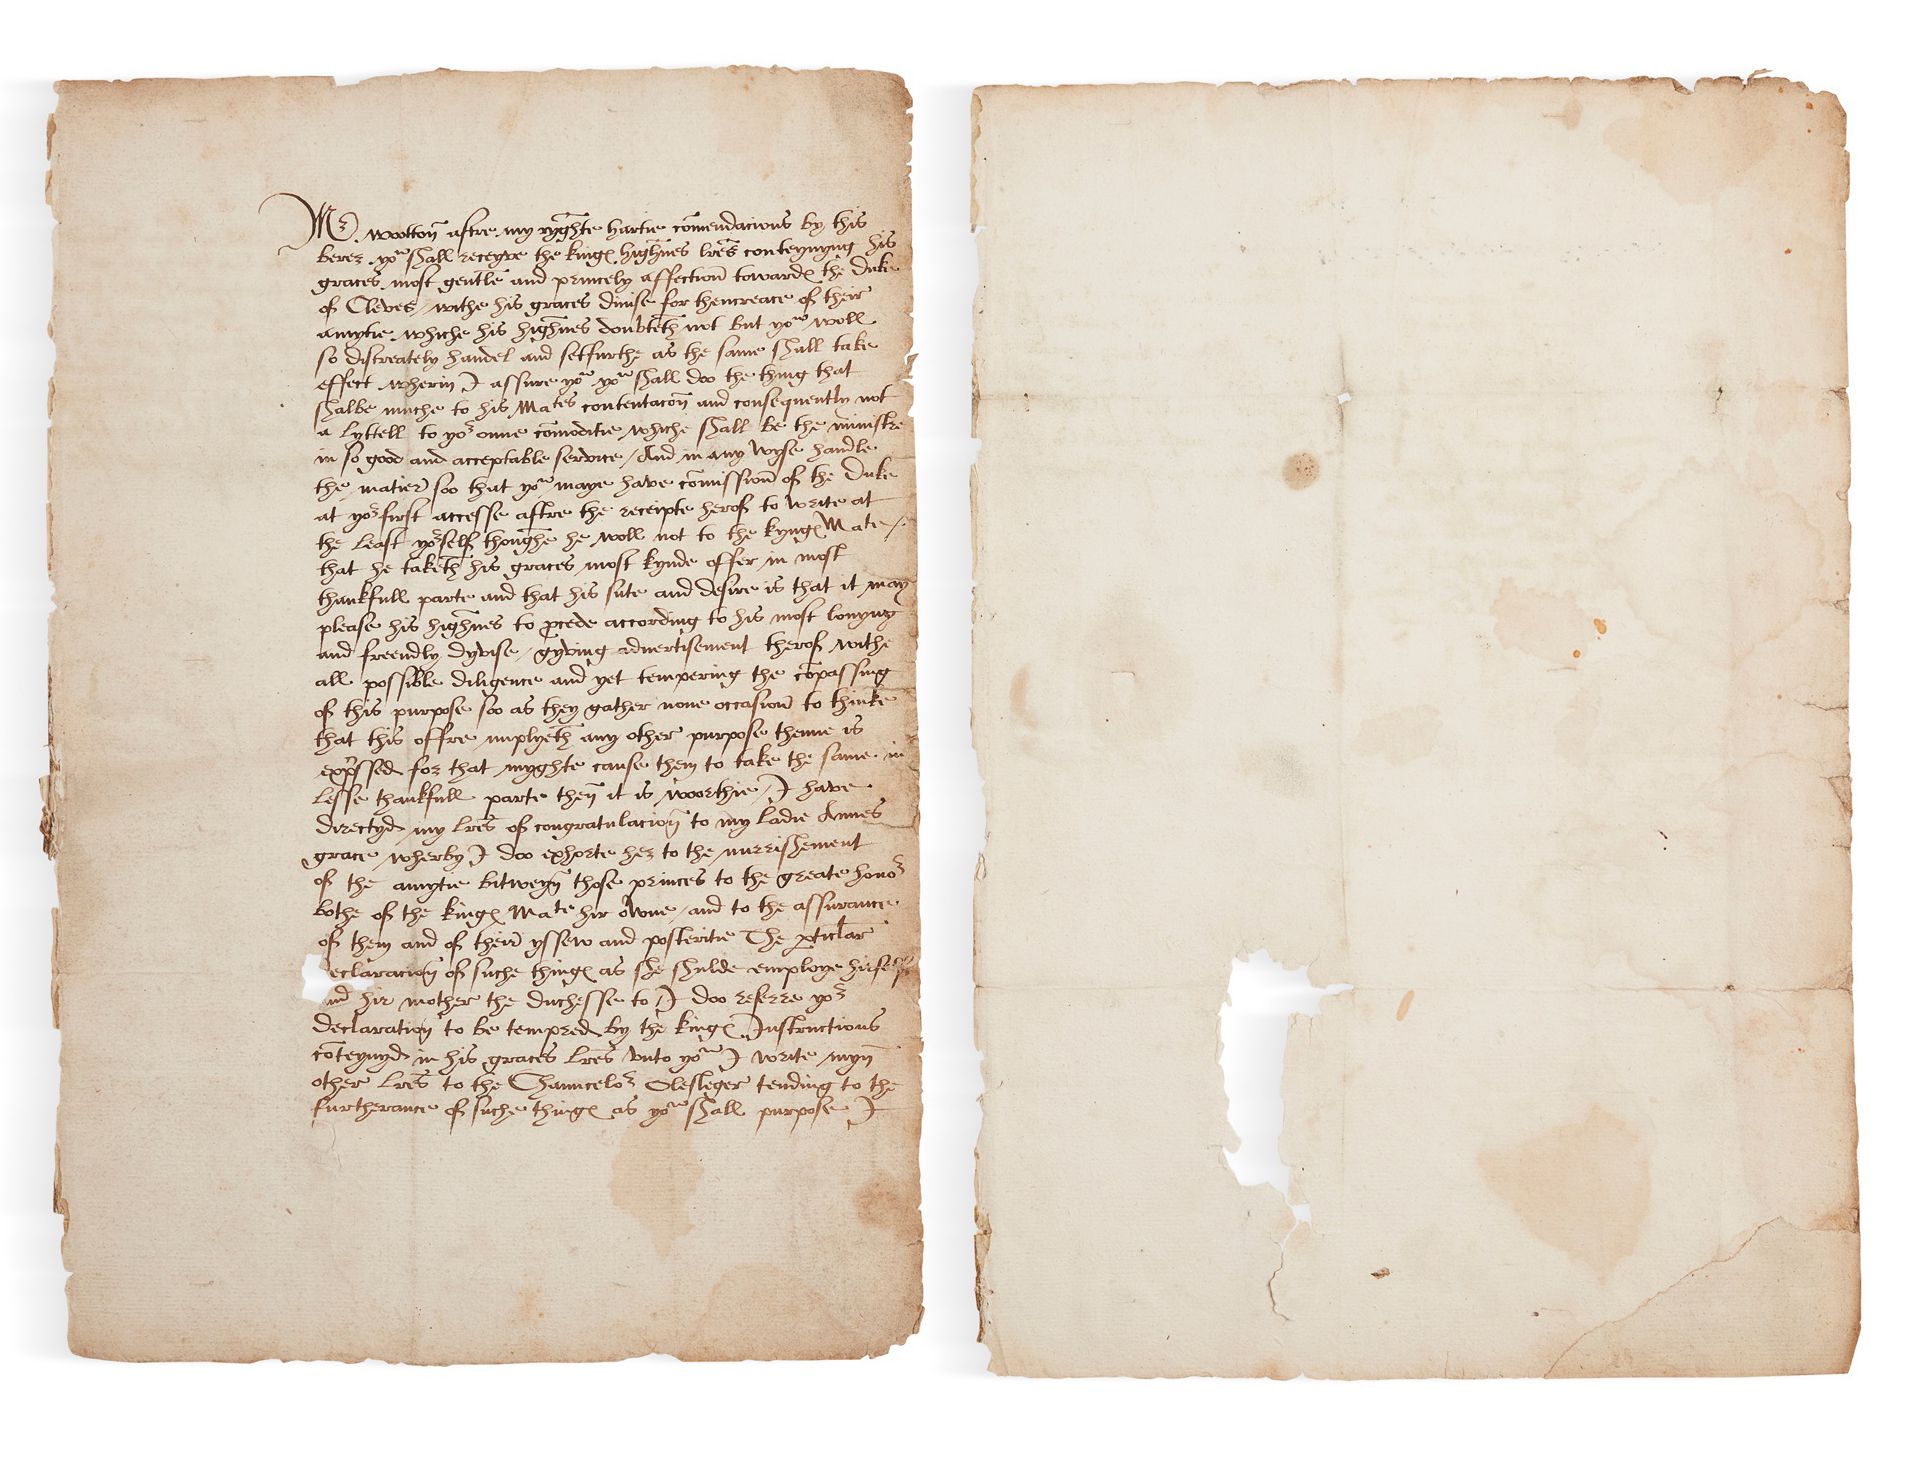 Mr wotton aftre my ryghte hartie comendacions by this
berer yow shall receyve the kinges highnes lres conteynyng his
graces most gentle and princely affection towardes the Duke
of Cleves / withe his graces divise for thencreace of their
amytie whiche his highnes doubteth not but yow woll
so discreately handel and setfurthe as the same shall take
effect wherin I assure yow yow shall doo the thing that
shalbe muche to his Mates contentacon and consequently not
a lyttell to yor owne comoditie whiche shall be the ministre
in so good and acceptable service / And in any wyse handle
the matier soo that yow maye have comission of the Duke
at yor first accesse aftre the receipte herof to write at
the least yorself thoughe he woll not to the kynges Mate /
that he taketh his graces most kynde offer in most
thankfull parte and that his sute and desire is that it may
please his highnes to procede according to his most lovyng
and freendly dyvise / gyving advertisement therof withe
all possible diligence and yet tempering the compassing
of this purpose soo as they gather none occasion to thinke
that this offre implyeth any other purpose thenne is
expressed for that myghte cause them to take the same in
lesse thankfull parte then it is woorthie / I have
directyd my lres of congratulacion to my ladie Annes
grace wherby I doo exhorte her to the nurrishement
of the amytie bitweyn those princes to the greate honor
bothe of the kinges Mate hir owne / and to the assurance
of them and of their yssew and posteritie The perticlar
eclaracion of suche thinges as she shulde employe hirself
and hir mother the duchesse to / I doo referre yor
declaration to be tempred by the kinges Instructions
conteynyd in his graces lres unto yow I write myn
other lres to the Chauncelor Olesleger tending to the
furtherance of suche thinges as yow shall purpose I